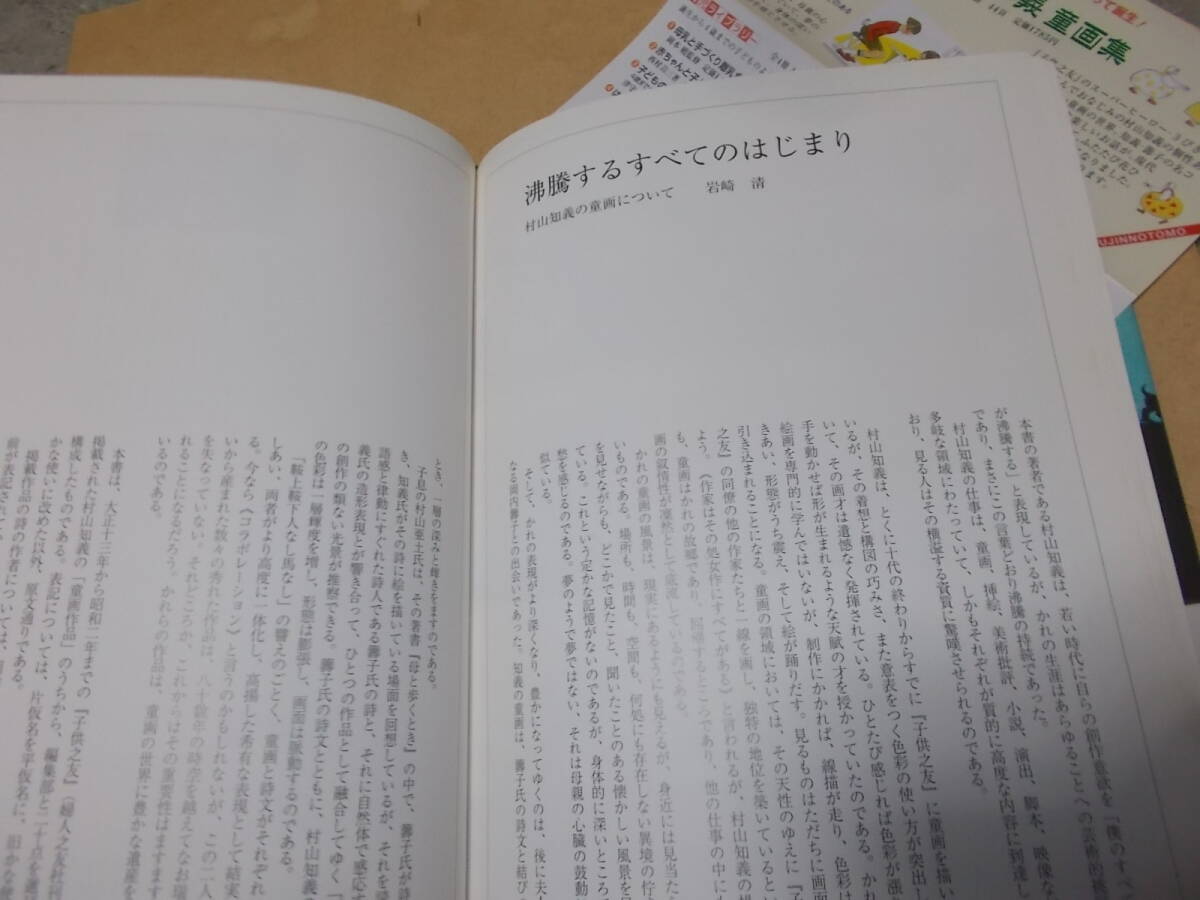 沸騰するすべてのはじまり
村山知義の童画について　岩崎　清
本書の著者である村山知義は、若い時代に自らの創作意欲を「僕のすべて
が沸騰する」と表現しているが、かれの生涯はあらゆることへの芸術的挑
であり、まさにこの言葉どおり沸騰の持続であった。
村山知義の仕事は、童画、挿絵、美術批評、小説、演出、脚本、映像な
多岐な領域にわたっていて、しかもそれぞれが質的に高度な内容に到達し
おり、見る人はその横溢する資質に驚嘆させられるのである。
村山知義は、とくに十代の終わりからすでに『子供之友』に童画を描い
いるが、その着想と構図の巧みさ、また意表をつく色彩の使い方が突出し
いて、その画才は遺憾なく発揮されている。ひとたび感じれば色彩が漲
手を動かせば形が生まれるような天賦の才を授かっていたのである。かれ
絵画を専門的に学んではいないが、制作にかかれば、線描が走り、色彩は
きあい、形態がうち震え、そして絵が踊りだす。見るものはただちに画面
引き込まれることになる。童画の領域においては、その天性のゆえに『子
之友』の同僚の他の作家たちと一線を画し、独特の地位を築いているとい
よう。《作家はその処女作にすべてがある》と言われるが、村山知義の場
も、童画はかれの故郷であり、回帰するところであり、他の仕事の中にも
画の叙情性が渾然として童流しているのである。
かれの童画の風景は、現実にあるようにも見えるが、身近には見当た
いものである。場所も、時間も、空間も、何処にも存在しない異境の佇
を見せながらも、どこかで見たこと、聞いたことのある懐かしい風景を
ている。これという定かな記憶がないのであるが、身体的に深いところ
愁を感じるのである。夢のようで夢ではない、それは母親の心臓の鼓動
似ている。
そして、かれの表現がより深くなり、豊かになってゆくのは、後に夫人
なる岡内籌子との出会いであった。知義の童画は、籌子氏の詩文と結び
とき、一層の深みと輝きをますのである。
子息の村山亜土氏は、その著書『母と歩くとき』の中で、籌子氏が詩
き、知義氏がその詩に絵を描いている場面を回想しているが、それを
語感と律動にすぐれた詩人である籌子氏の詩と、それに自然体で感応す
義氏の造形表現とが響き合って、ひとつの作品として融合してゆく
の創作の類ない光景が推察できる。籌子氏の詩文とともに、村山知義
の色彩は一層輝度を増し、形態は膨張し、画面は脈動するのである。
「鞍上鞍下人なし馬なし」の譬えのごとく、童画と詩文がそれぞれ
しあい、両者がより高度に一体化し、高揚した希有な表現として結実
る。今なら《コラボレーション》と言うのかもしれないが、この二人
いから産まれた数々の秀れた作品は、八十数年の時空を越えてなお瑞
を失なっていない。それどころか、これからはその重要性はますます
れることになるだろう。かれらの作品は、童画の世界に豊かな遺産を
いるのである。
本書は、大正十三年から昭和二年までの『子供之友』（婦人之友社
掲載された村山知義の「童画作品」のうちから、編集部と二十点を選
構成したものである。表記については、片仮名を平仮名に、旧かな
かな使いに改めた以外、原文通りである。
掲載作品の詩の作者については、
前が表記されて
って誕生！
義 童画集
定価1785円
ライブラリー
母乳と手づくり離乳
赤ちゃんと子
子どもの
UJINNOTOMO